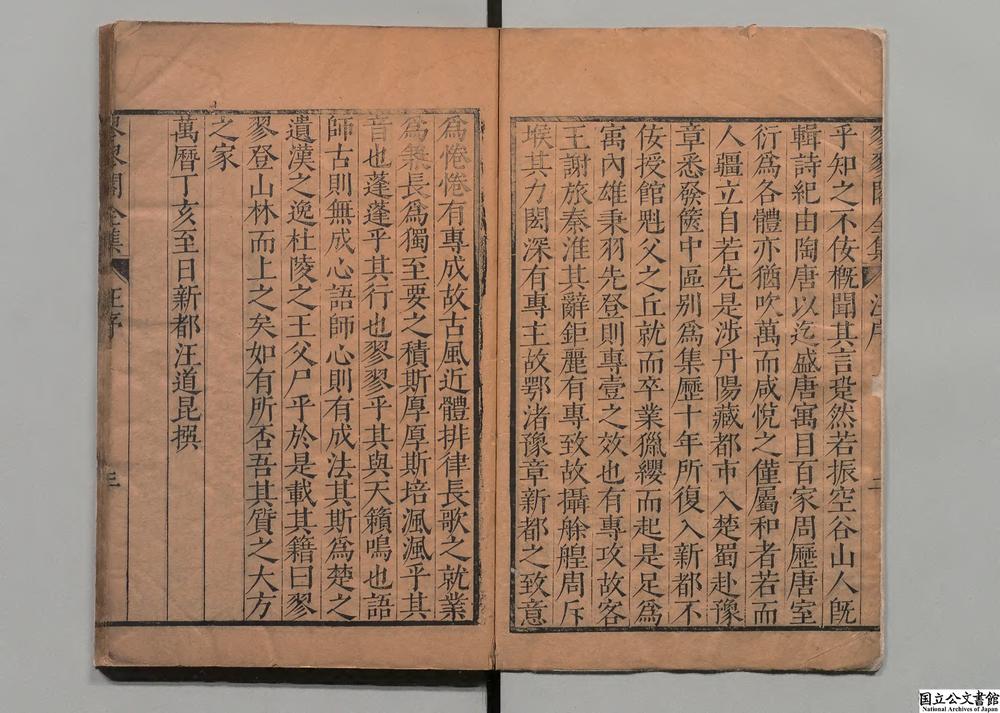 乎知之不佞概聞其言跫然若振空谷山人旣
輯詩紀由陶唐以迄盛唐寓目百家周歷唐室
衍爲各體亦猶吹萬而咸悅之僅屬和者若而
人疆立自若先是涉丹陽藏都市入楚蜀赴豫
章悉發篋中區别爲集歷十年所復入新都不
佞授館魁父之丘就而卒業獵纓而起是足爲
寓內雄秉羽先登則專壹之效也有專攻故客
王謝旅秦淮其辭鉅麗有專致故攝艅艎周斥
堠其力閎深有專主故鄂渚豫章新都之致意
爲惓惓有專成故古風近體排律長歌之就業
爲築長爲獨至要之積斯厚厚斯培渢渢乎其
音也蓬蓬乎其行也翏翏乎其與天籟鳴也語
師古則無成心語師心則有成法其斯爲楚之
遺漢之逸杜陵之王父尸乎於是載其籍曰翏
翏登山林而上之矣如有所否吾其質之大方
之家
萬曆丁亥至日新都汪道昆撰
翏翏閣全集 汪序 三
国立公文書館
National Archives of Japan